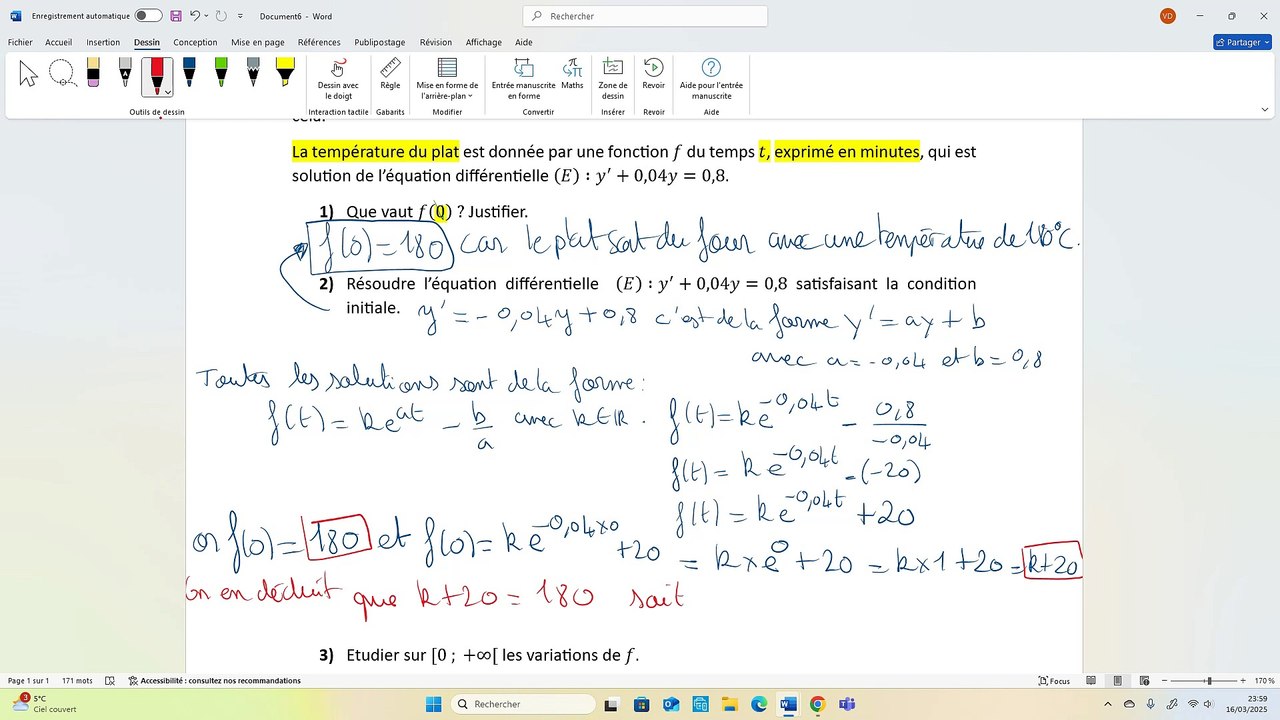 Enregistrement automatique
Document6 - Word
Rechercher
VD
Fichier Accueil Insertion Dessin Conception Mise en page Références Publipostage Révision Affichage Aide
Partager
Dessin avec le doigt
Règle
Mise en forme de l'arrière-plan
Entrée manuscrite en forme
Maths
Zone de dessin
Revoir
Aide pour l'entrée manuscrite
Outils de dessin
Interaction tactile
Gabarits
Modifier
Convertir
Insérer
Revoir
Aide
La température du plat est donnée par une fonction f du temps t, exprimé en minutes, qui est
solution de l'équation différentielle (E) : y′ + 0,04y = 0,8.
1) Que vaut f(0) ? Justifier.
f(0) = 180 car le plat sort du four avec une température de 180°C.
2) Résoudre l'équation différentielle (E) : y′ + 0,04y = 0,8 satisfaisant la condition
initiale. y' = -0,04y + 0,8 c'est de la forme y' = ay + b
avec a = -0,04 et b = 0,8
Toutes les solutions sont de la forme :
f(t) = k e^{at} - b/a avec k ∈ ℝ . f(t) = k e^{-0,04t} - 0,8/-0,04
f(t) = k e^{-0,04t} - (-20)
f(t) = k e^{-0,04t} + 20
or f(0) = 180 et f(0) = k e^{-0,04×0} + 20 = k × e^0 + 20 = k × 1 + 20 = k + 20
on en déduit que k + 20 = 180 soit
3) Etudier sur [0 ; +∞[ les variations de f.
Page 1 sur 1 171 mots Accessibilité : consultez nos recommandations Focus 170 %
3
5°C
Ciel couvert
Rechercher
23:59
16/03/2025